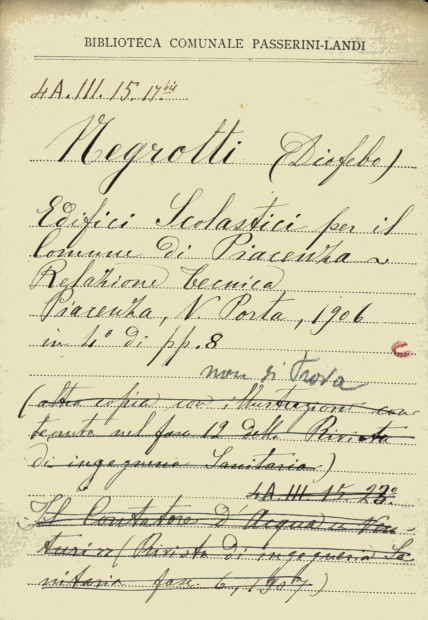 BIBLIOTECA COMUNALE PASSERINI-LANDI
4A.III.15.17bis
Negrotti (Diofebo)
Edifici Scolastici per il
Comune di Piacenza ~
Relazione tecnica
Piacenza, N. Porta, 1906
in 4° di pp. 8
non si trova
(altra copia con illustrazioni con-
tenuta nel fasc 12 della Rivista
di ingegneria Sanitaria)
4A III 15 23°
Il Contatore d'Acqua a Ven-
turi (Rivista di ingegneria Sa-
nitaria fasc. 6, 1907)